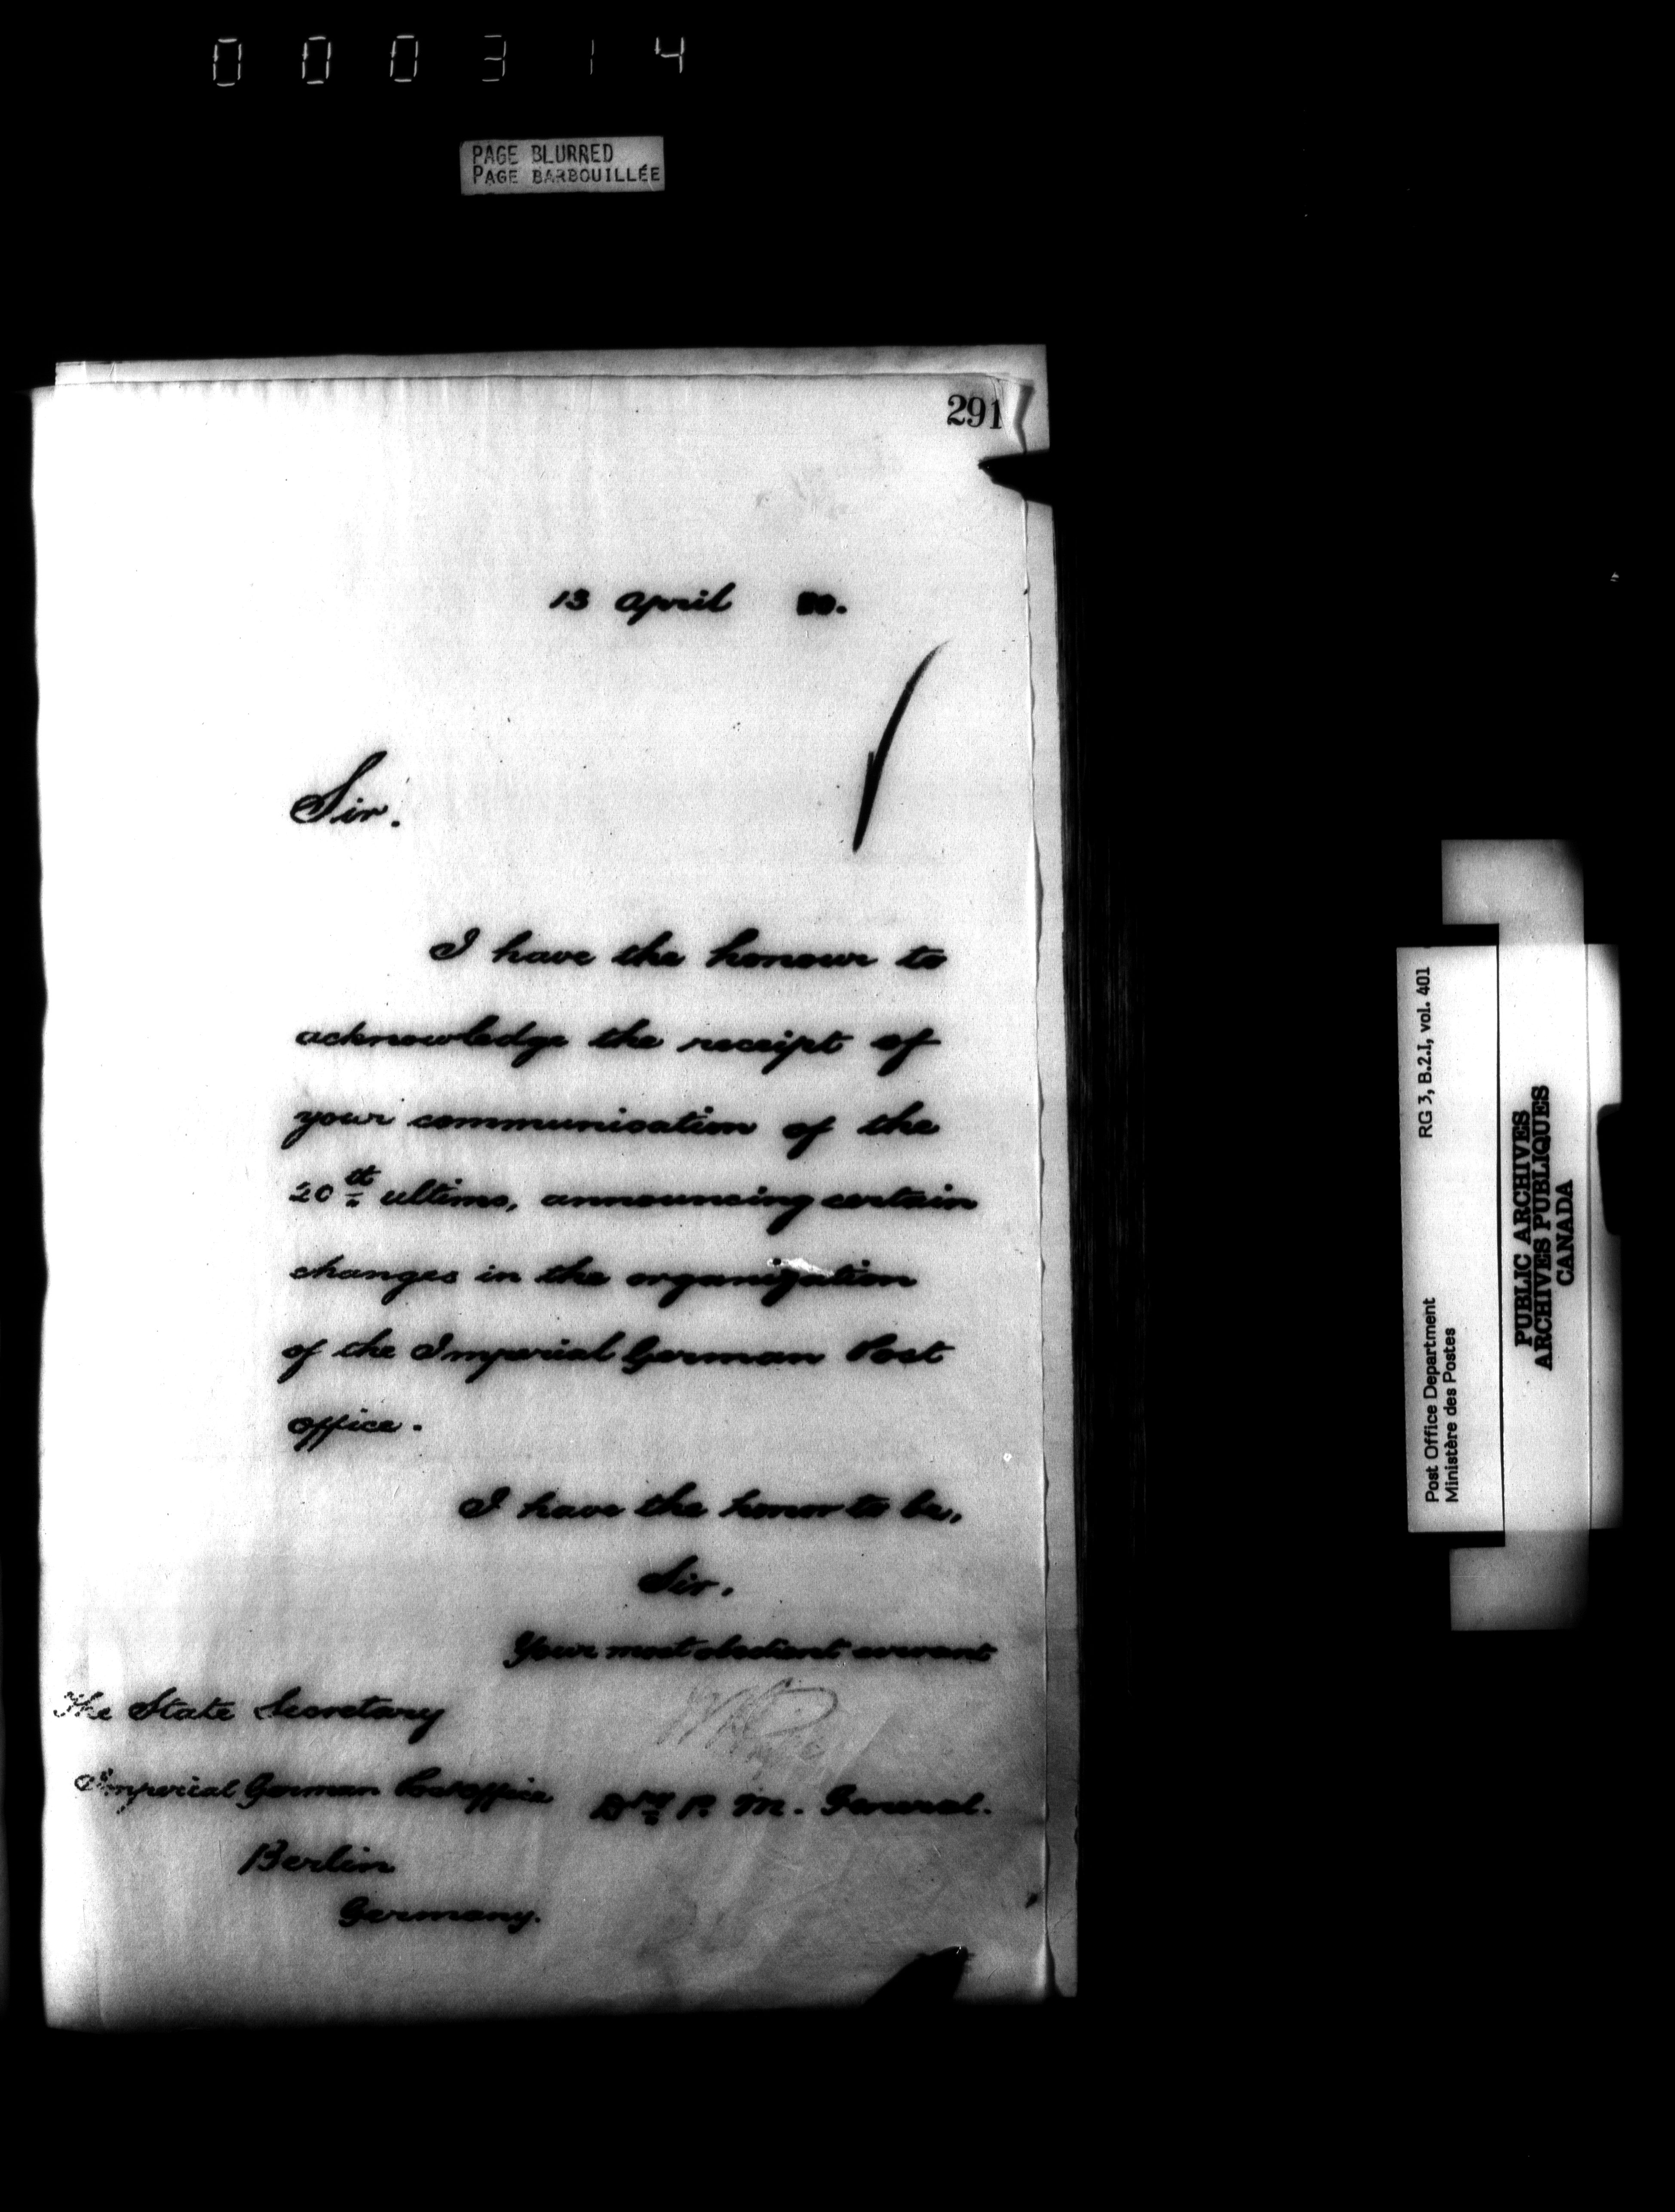 000314
PAGE BLURRED
PAGE BARBOUILLÉE
291
13 April
Sir.
I have the honour to
acknowledge the receipt of
your communication of the
20th ultimo, announcing certain
changes in the organization
of the Imperial German Post
office.
I have the honor to be,
Sir,
Your most obedient servant
The State Secretary
Imperial German Postoffice
Dy P. M. General.
Berlin
Germany.
RG 3, B.2.I, vol. 401
Post Office Department
Ministère des Postes
PUBLIC ARCHIVES
ARCHIVES PUBLIQUES
CANADA